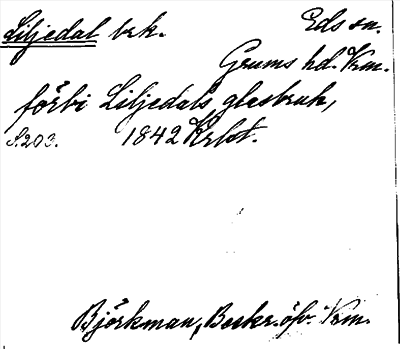 Liljedal brk. Eds sn.
Grums hd. Vrm.
förbi Liljedals glasbruk,
S. 203. 1842 Krlst.
Björkman, Beskr. öfv. Vrm.